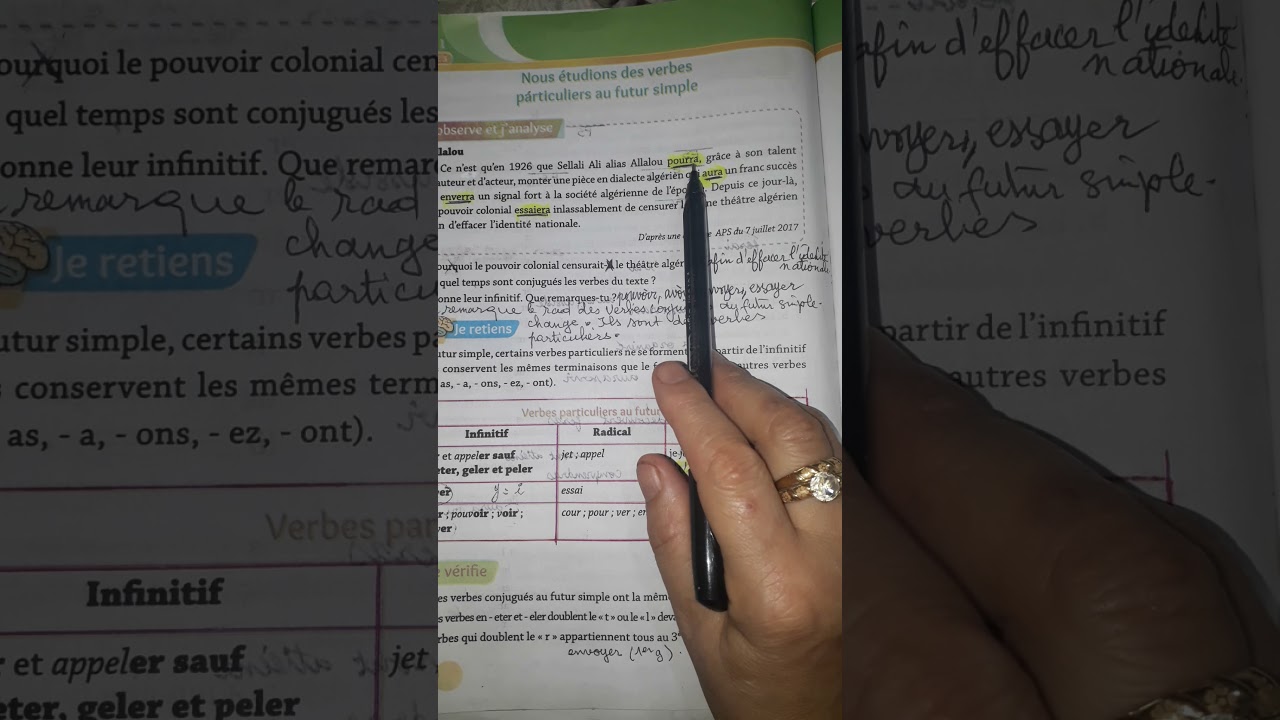 Nous étudions des verbes
párticuliers au futur simple
observe et j'analyse
lalou
Ce n'est qu'en 1926 que Sellali Ali alias Allalou pourra, grâce à son talent
auteur et d'acteur, monter une pièce en dialecte algérien qui aura un franc succès
enverra un signal fort à la société algérienne de l'époque. Depuis ce jour-là,
pouvoir colonial essaiera inlassablement de censurer le théâtre algérien
n d'effacer l'identité nationale.
D'après une APS du 7 juillet 2017
ourquoi le pouvoir colonial censurait le théâtre algér afin d'effacer l'idetité
nationale.
quel temps sont conjugués les verbes du texte ?
onne leur infinitif. Que remarques-tu ? pouvoir, avoir, envoyer, essayer
remarque le rad des verbes du futur simple.
change. Ils sont des verbes
particuliers.
Je retiens
utur simple, certains verbes particuliers ne se forment partir de l'infinitif
conservent les mêmes terminaisons que le autres verbes
as, - a, - ons, - ez, - ont).
Verbes particuliers au futur
Infinitif Radical
r et appeler sauf jet ; appel je je
eter, geler et peler
yer) y = i essai
r ; pouvoir ; voir ; cour ; pour ; ver ; en
er
vérifie
es verbes conjugués au futur simple ont la même
s verbes en - eter et - eler doublent le « t » ou le « l » deva
rbes qui doublent le « r » appartiennent tous au 3e
envoyer (1er g).